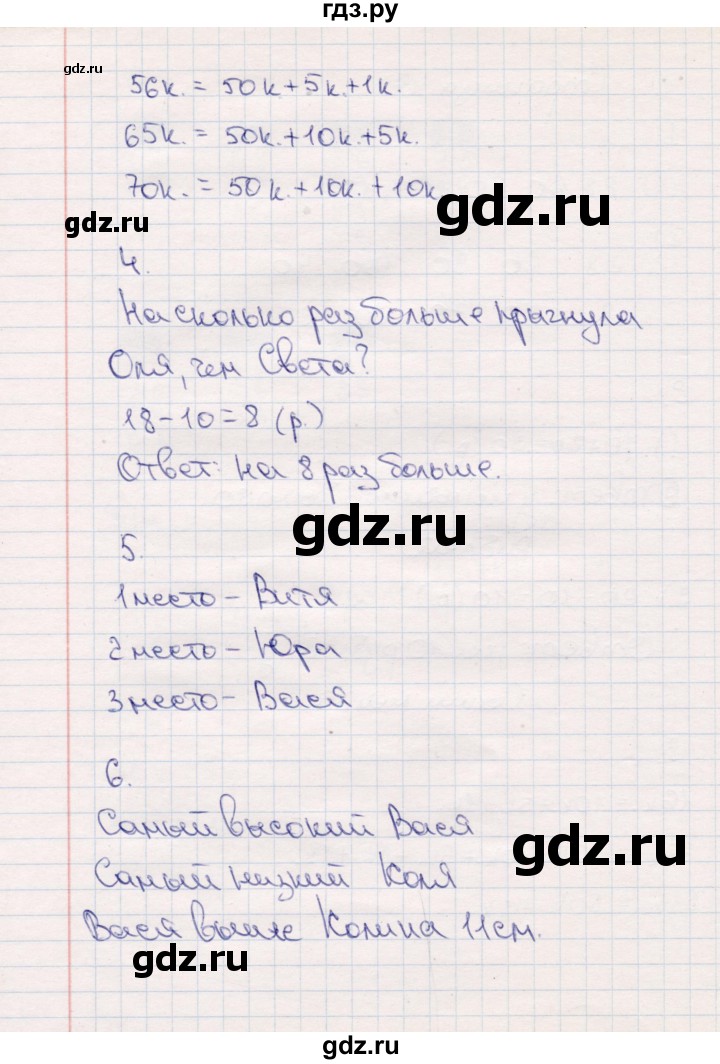 гдз.ру
gdz.ru
56к. = 50к+5к+1к.
65к. = 50к.+10к.+5к.
70к. = 50к.+10к.+10к
gdz.ru
gdz.ru
4.
На сколько раз больше прыгнула
Оля, чем Света?
18-10=8 (р.)
Ответ: на 8 раз больше.
gdz.ru
5.
1 место - Витя
2 место - Юра
3 место - Вася
6.
Самый высокий Вася
gdz.ru
Самый низкий Коля
Вася выше Коли на 11см.
gdz.ru
gdz.ru